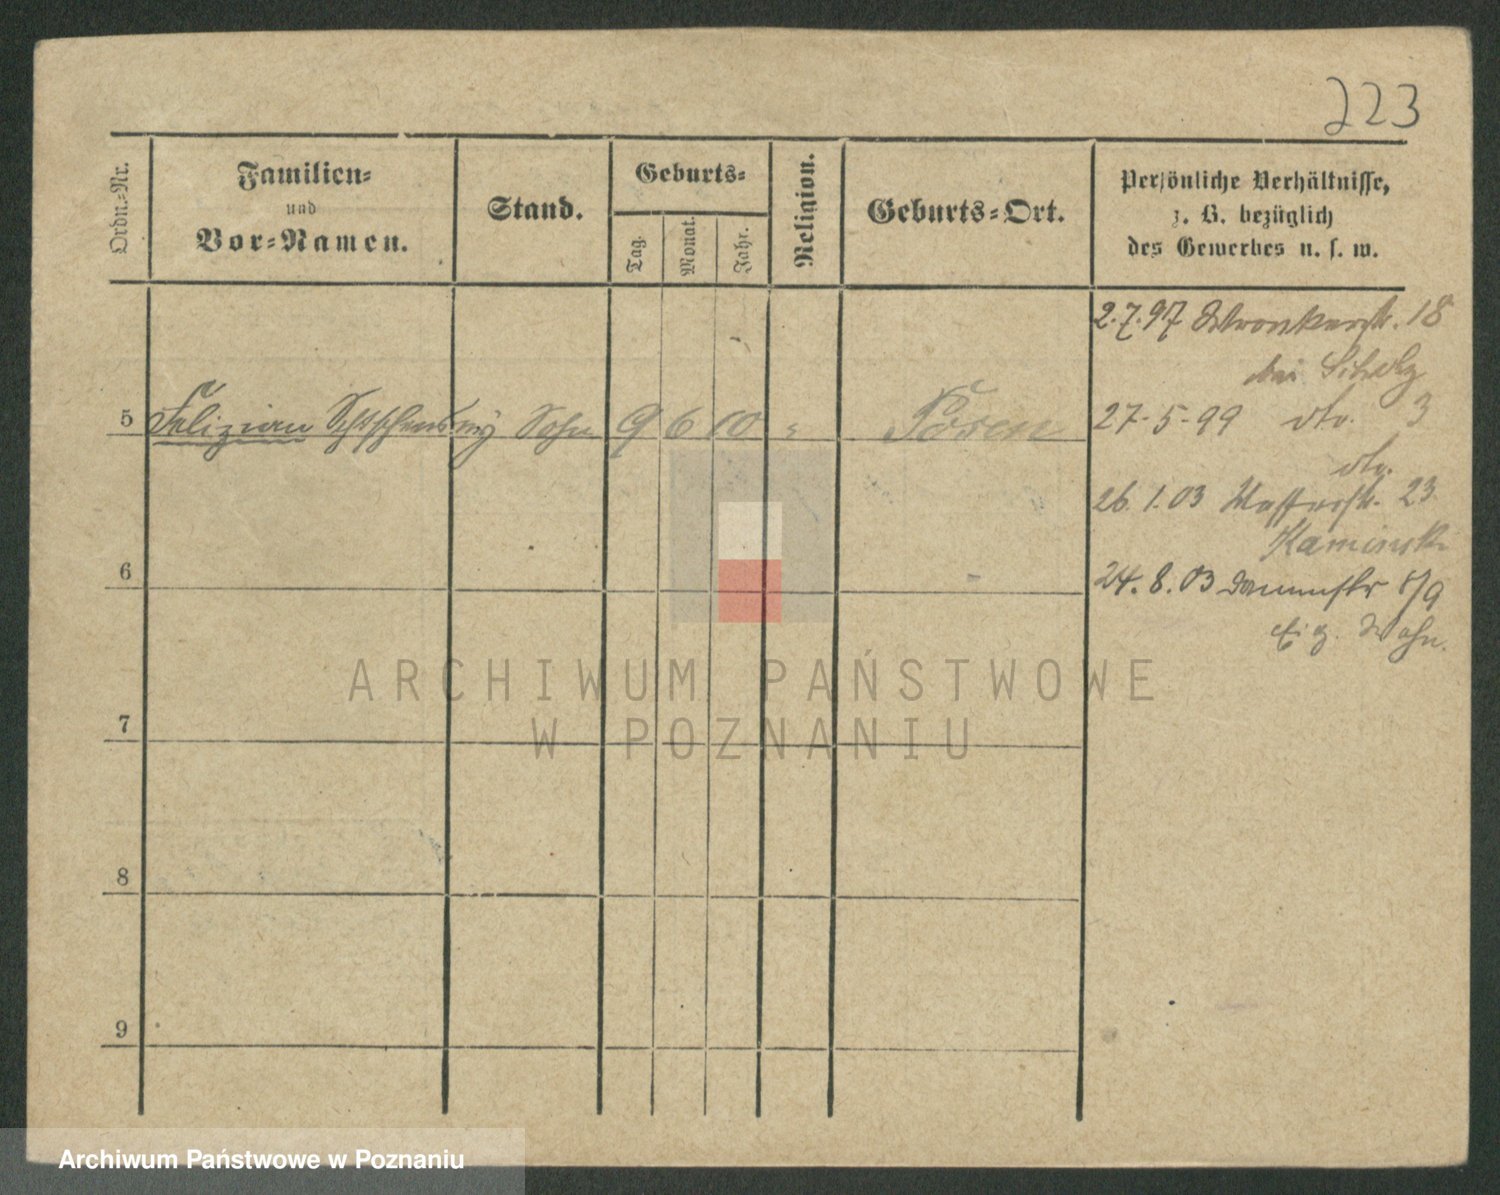 223
Ordn.-Nr.
Familien-
und
Vor-Namen.
Stand.
Geburts-
Tag.
Monat.
Jahr.
Religion.
Geburts-Ort.
Persönliche Verhältnisse,
z. B. bezüglich
des Gewerbes u. s. w.
2.7.97 Wronkerstr. 18
bei Scholz
5 Felizian Sohn 9 6 00 " Posen
27-5-99 dto. 3
dto.
26.1.03 Wasserstr. 23
Kaminski
6
24.8.03 Dammstr 8/9
Eig. Wohn.
7
8
9
ARCHIWUM PAŃSTWOWE
W POZNANIU
Archiwum Państwowe w Poznaniu